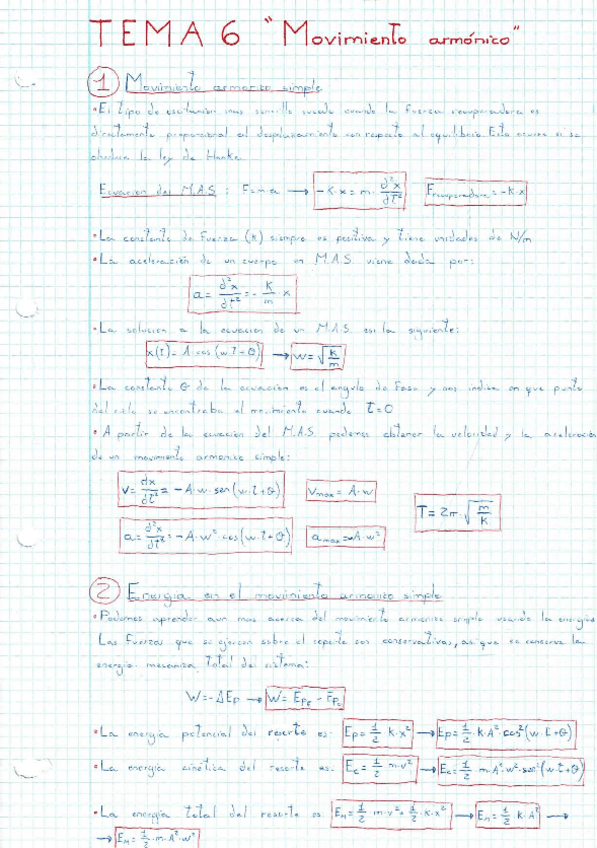 TEMA 6 "Movimiento armónico"
1 Movimiento armonico simple
• El tipo de oscilacion mas sencilla sucede cuando la fuerza recuperadora es
directamente proporcional al desplazamiento con respecto al equilibrio. Esto ocurre si se
obedece la ley de Hooke.
Ecuacion del M.A.S : F=m·a → -K·x = m· d²x/dt² Frecuperadora = -K·x
• La constante de Fuerza (K) siempre es positiva y tiene unidades de N/m
• La aceleración de un cuerpo en M.A.S viene dada por:
a = d²x/dt² = - K/m · x
• La solucion a la ecuacion de un M.A.S. es la siguiente:
x(t) = A·cos(w·t+θ) → w = √K/m
• La constante θ de la ecuacion es el angulo de Fase y nos indica en que punto
del ciclo se encontraba el movimiento cuando t=0
• A partir de la ecuación del M.A.S. podemos obtener la velocidad y la aceleración
de un movimiento armonico simple:
v = dx/dt² = -A·w·sen(w·t+θ) vmax = A·w
T = 2π·√m/K
a = d²x/dt² = -A·w²·cos(w·t+θ) amax = A·w²
2 Energia en el movimiento armonico simple
• Podemos aprender aun mas acerca del movimiento armonico simple usando la energia
Las Fuerzas que se ejercen sobre el resorte son conservativas, asi que se conserva la
energia mecanica total del sistema:
W = -ΔEp → W =
• La energia potencial del resorte es: Ep = 1/2 · k·x² → Ep = 1/2 · K·A²·cos²(w·t+θ)
• La energia cinética del resorte es: Ec = 1/2 m·v² → Ec = 1/2 m·A²·w²·sen²(w·t+θ)
• La energia total del resorte es: Em = 1/2 · m·v² + 1/2 · K·x² → Em = 1/2 · K·A² →
→ Em = 1/2 · m·A²·w²